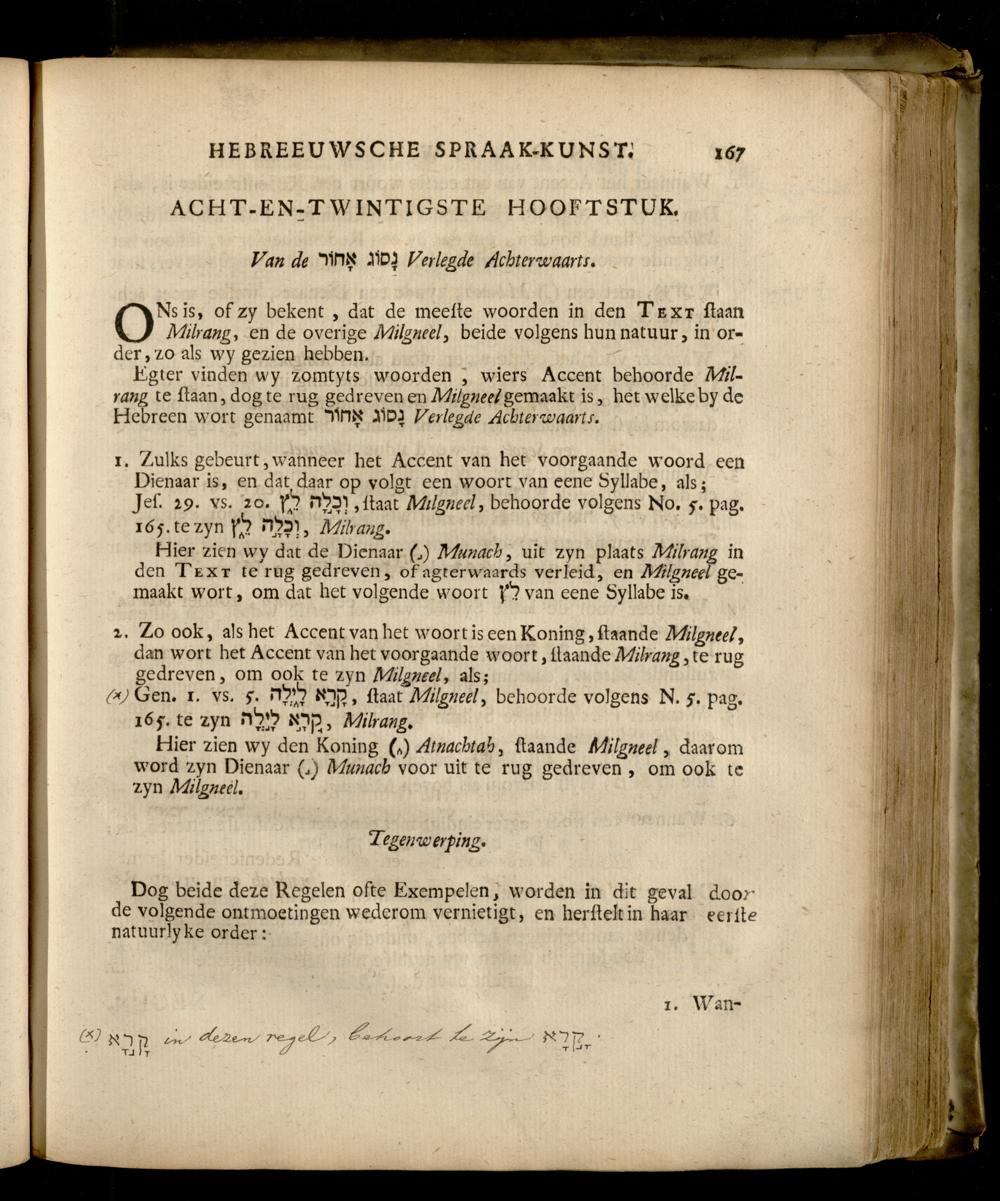 HEBREEUWSCHE SPRAAK-KUNST. 167
ACHT-EN-TWINTIGSTE HOOFTSTUK.
Van de נָסוֹג אָחוֹר Verlegde Achterwaarts.
ONs is, of zy bekent, dat de meeſte woorden in den TEXT ſtaan
Milrang, en de overige Milgneel, beide volgens hun natuur, in or-
der, zo als wy gezien hebben.
Egter vinden wy zomtyts woorden, wiers Accent behoorde Mil-
rang te ſtaan, dog te rug gedreven en Milgneel gemaakt is, het welke by de
Hebreen wort genaamt נָסוֹג אָחוֹר Verlegde Achterwaarts.
1. Zulks gebeurt, wanneer het Accent van het voorgaande woord een
Dienaar is, en dat daar op volgt een woort van eene Syllabe, als;
Jeſ. 29. vs. 20. וְכָ֣לָה לֵ֑ץ, ſtaat Milgneel, behoorde volgens No. 5. pag.
165. te zyn וְכָלָ֣ה לֵ֑ץ, Milrang.
Hier zien wy dat de Dienaar (֣) Munach, uit zyn plaats Milrang in
den TEXT te rug gedreven, of agterwaards verleid, en Milgneel ge-
maakt wort, om dat het volgende woort לֵץ van eene Syllabe is.
2. Zo ook, als het Accent van het woort is een Koning, ſtaande Milgneel,
dan wort het Accent van het voorgaande woort, ſtaande Milrang, te rug
gedreven, om ook te zyn Milgneel, als;
(x) Gen. 1. vs. 5. קָרָ֣א לָ֑יְלָה, ſtaat Milgneel, behoorde volgens N. 5. pag.
165. te zyn קָרָ֣א לָ֑יְלָה, Milrang.
Hier zien wy den Koning (֑) Atnachtah, ſtaande Milgneel, daarom
word zyn Dienaar (֣) Munach voor uit te rug gedreven, om ook te
zyn Milgneel.
Tegenwerping.
Dog beide deze Regelen ofte Exempelen, worden in dit geval door
de volgende ontmoetingen wederom vernietigt, en herſtelt in haar eerſte
natuurlyke order:
1. Wan-
(x) קָרָ֣א in dezen regel, behoort te zijn קָ֣רָא.